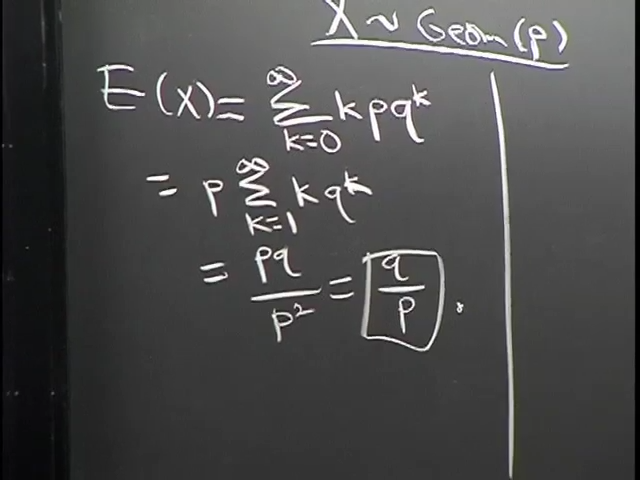 X ~ Geom(p)
E(X) = ∞ Σ k=0 k p q^k
= p ∞ Σ k=1 k q^k
= pq/p² = q/p .